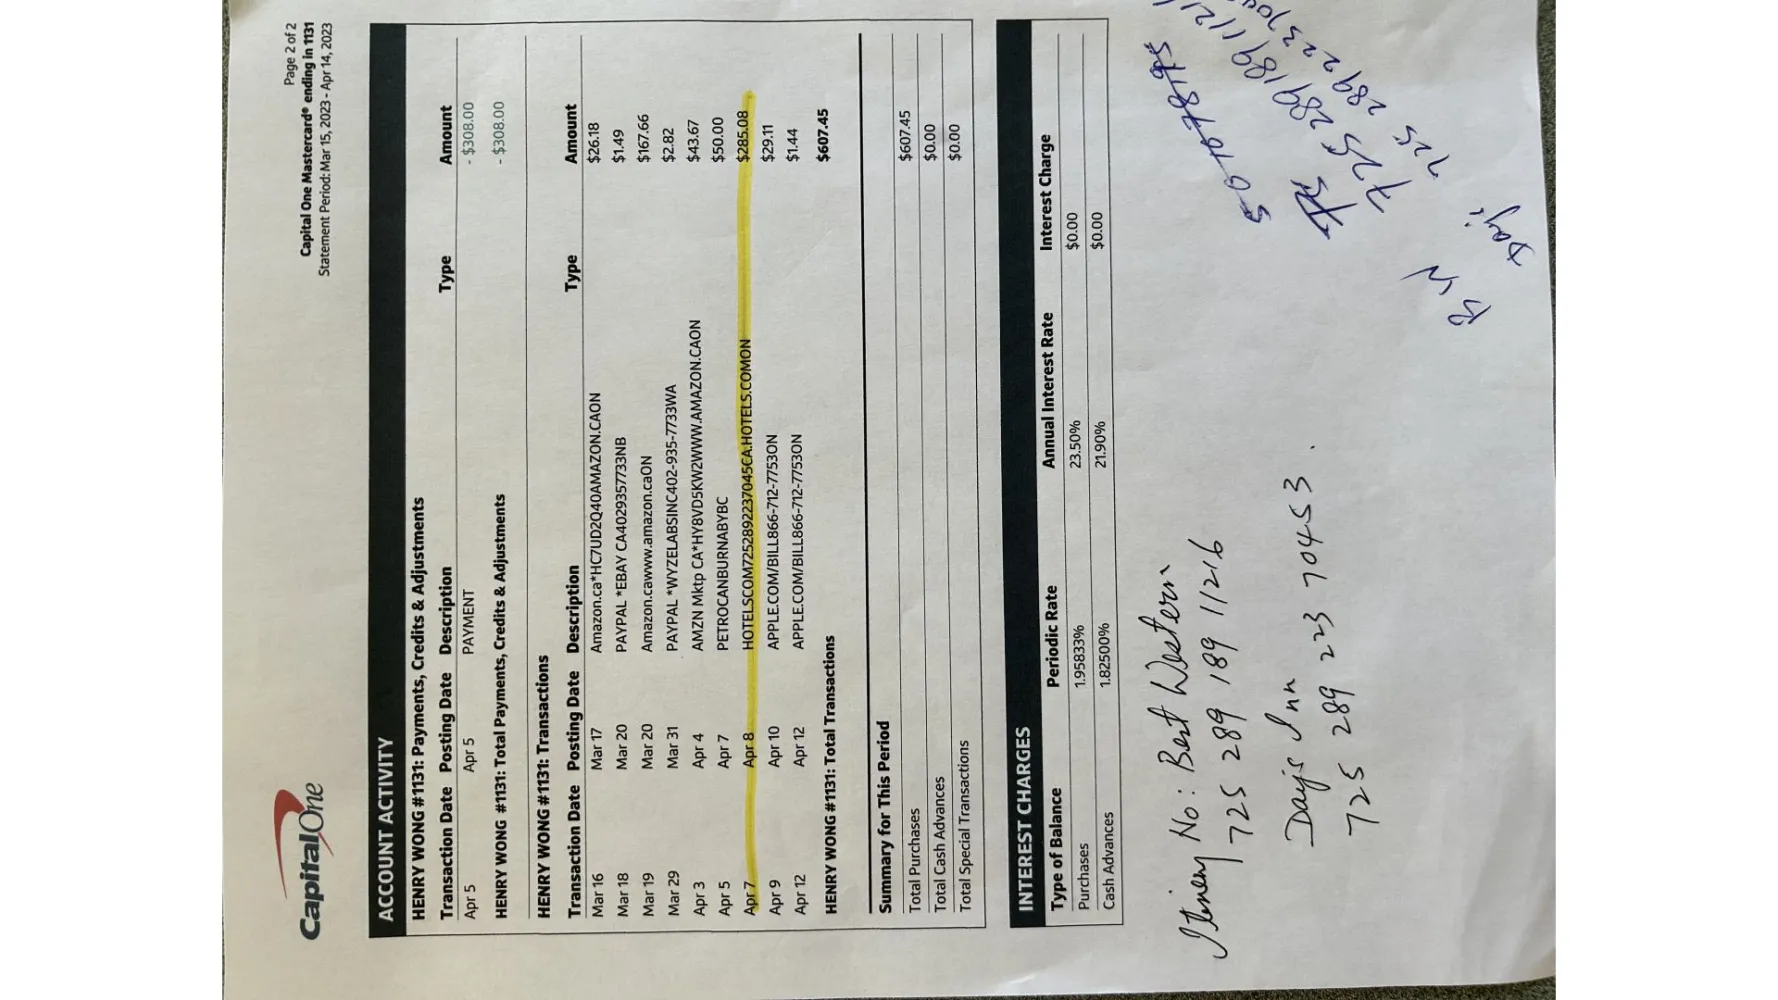 CapitalOne
Page 2 of 2
Capital One Mastercard® ending in 1131
Statement Period: Mar 15, 2023 - Apr 14, 2023
ACCOUNT ACTIVITY
HENRY WONG #1131: Payments, Credits & Adjustments
Transaction Date Posting Date Description Type Amount
Apr 5 Apr 5 PAYMENT - $308.00
HENRY WONG #1131: Total Payments, Credits & Adjustments - $308.00
HENRY WONG #1131: Transactions
Transaction Date Posting Date Description Type Amount
Mar 16 Mar 17 Amazon.ca*HC7UD2Q40AMAZON.CAON $26.18
Mar 18 Mar 20 PAYPAL *EBAY CA4029357733NB $1.49
Mar 19 Mar 20 Amazon.cawww.amazon.caON $167.66
Mar 29 Mar 31 PAYPAL *WYZELABSINC402-935-7733WA $2.82
Apr 3 Apr 4 AMZN Mktp CA*HY8VD5KW2WWW.AMAZON.CAON $43.67
Apr 5 Apr 7 PETROCANBURNABYBC $50.00
Apr 7 Apr 8 HOTELSCOM7252892237045CA.HOTELS.COMON $285.08
Apr 9 Apr 10 APPLE.COM/BILL866-712-7753ON $29.11
Apr 12 Apr 12 APPLE.COM/BILL866-712-7753ON $1.44
HENRY WONG #1131: Total Transactions $607.45
Summary for This Period
Total Purchases $607.45
Total Cash Advances $0.00
Total Special Transactions $0.00
INTEREST CHARGES
Type of Balance Periodic Rate Annual Interest Rate Interest Charge
Purchases 1.95833% 23.50% $0.00
Cash Advances 1.82500% 21.90% $0.00
Itinery No: Best Western
725 289 189 11216
Days Inn
725 289 223 70453.
725 289 189 1121
725 289 223 704
BW
Days